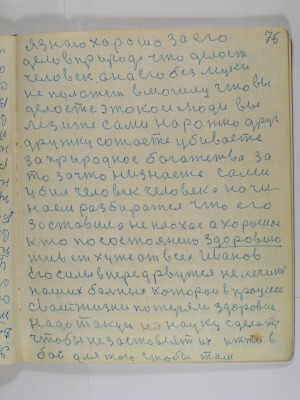 76
я знаю хорошо за его
дело в природе что делает
человек она его без муки
не положет в могилу что вы
делаете этакои люди вы
лезите сами нарожно друг
дружку сотаете убиваете
за природное богатства за
то за что низнаете сами
убил человек человека начи-
наем разбиратся что его
заставила не плохое а хорошое
кто по состоянию здоровию
живет хуже от всех Иванов
его силы вперед рвутся не лечит
наших больных которои в процессе
своеи жизни потеряли здоровие
надо такую на науку сделать
чтобы незаставлят их итти в
бои для того чтобы там